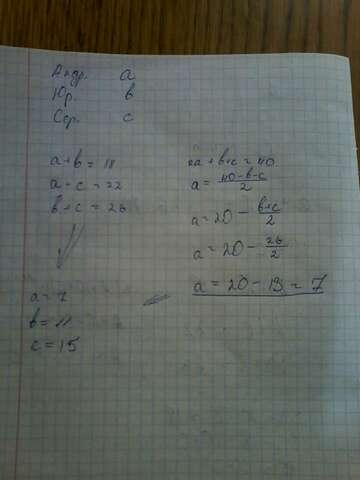 Андр. a
Юр. b
Сер. c
a+b = 18
a+c = 22
b+c = 26
a = 7
b = 11
c = 15
2a+b+c = 40
a = \frac{40-b-c}{2}
a = 20 - \frac{b+c}{2}
a = 20 - \frac{26}{2}
a = 20 - 13 = 7